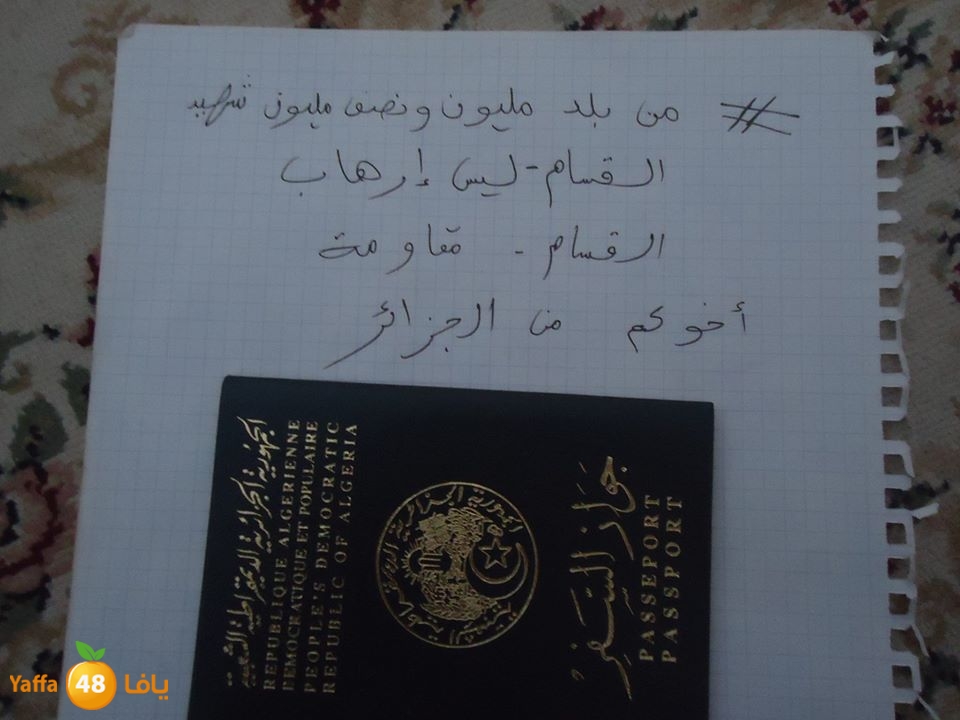 # من بلد مليون ونصف مليون شهيد
القسام - ليس إرهاب
القسام - مقاومة
أخوكم من الجزائر
الجمهورية الجزائرية الديمقراطية الشعبية
REPUBLIQUE ALGERIENNE
DEMOCRATIQUE ET POPULAIRE
PEOPLE'S DEMOCRATIC
REPUBLIC OF ALGERIA
الجمهورية الجزائرية الديمقراطية الشعبية
جواز السفر
PASSEPORT
PASSPORT
Yaffa 48 يافا